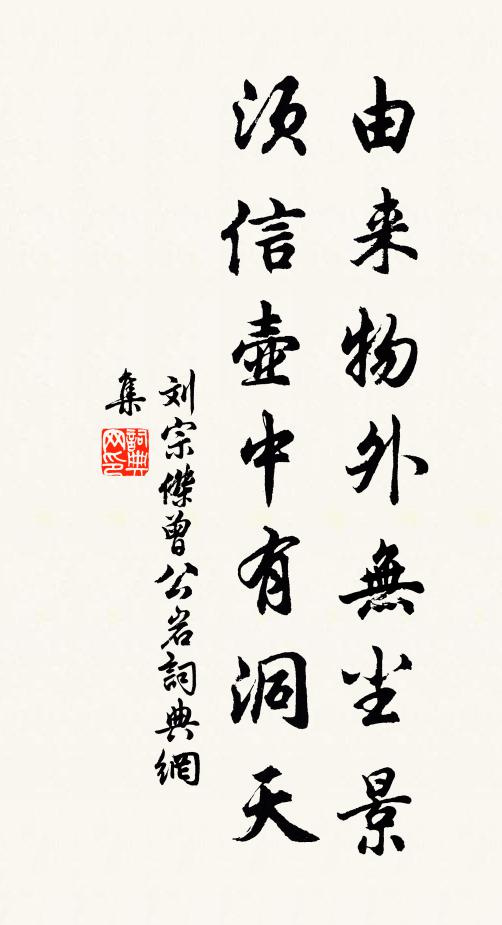 由来物外無尘景
须信壷中有洞天
刘宗傑曾公岩詞典網
集
詞典
网印